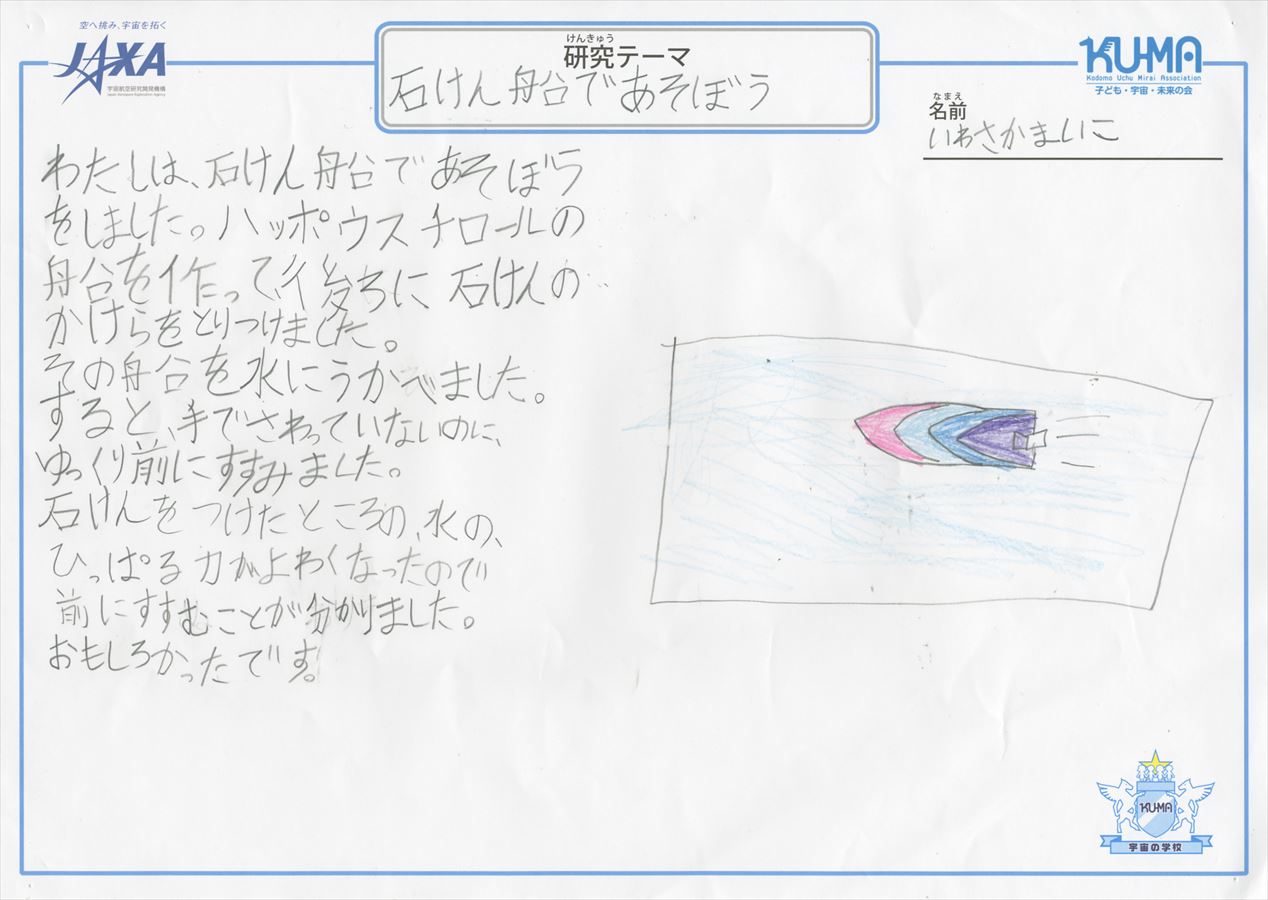 空へ挑み、宇宙を拓く
JAXA
宇宙航空研究開発機構
Japan Aerospace Exploration Agency
けんきゅう
研究テーマ
石けん船であそぼう
KU-MA
Kodomo Uchu Mirai Association
子ども・宇宙・未来の会
なまえ
名前
いわさかまいこ
わたしは、石けん船であそぼう
をしました。ハッポウスチロールの
船を作って、後ろに石けんの
かけらをとりつけました。
その船を水にうかべました。
すると、手でさわっていないのに、
ゆっくり前にすすみました。
石けんをつけたところの、水の、
ひっぱる力がよわくなったので
前にすすむことが分かりました。
おもしろかったです。
KU-MA
宇宙の学校